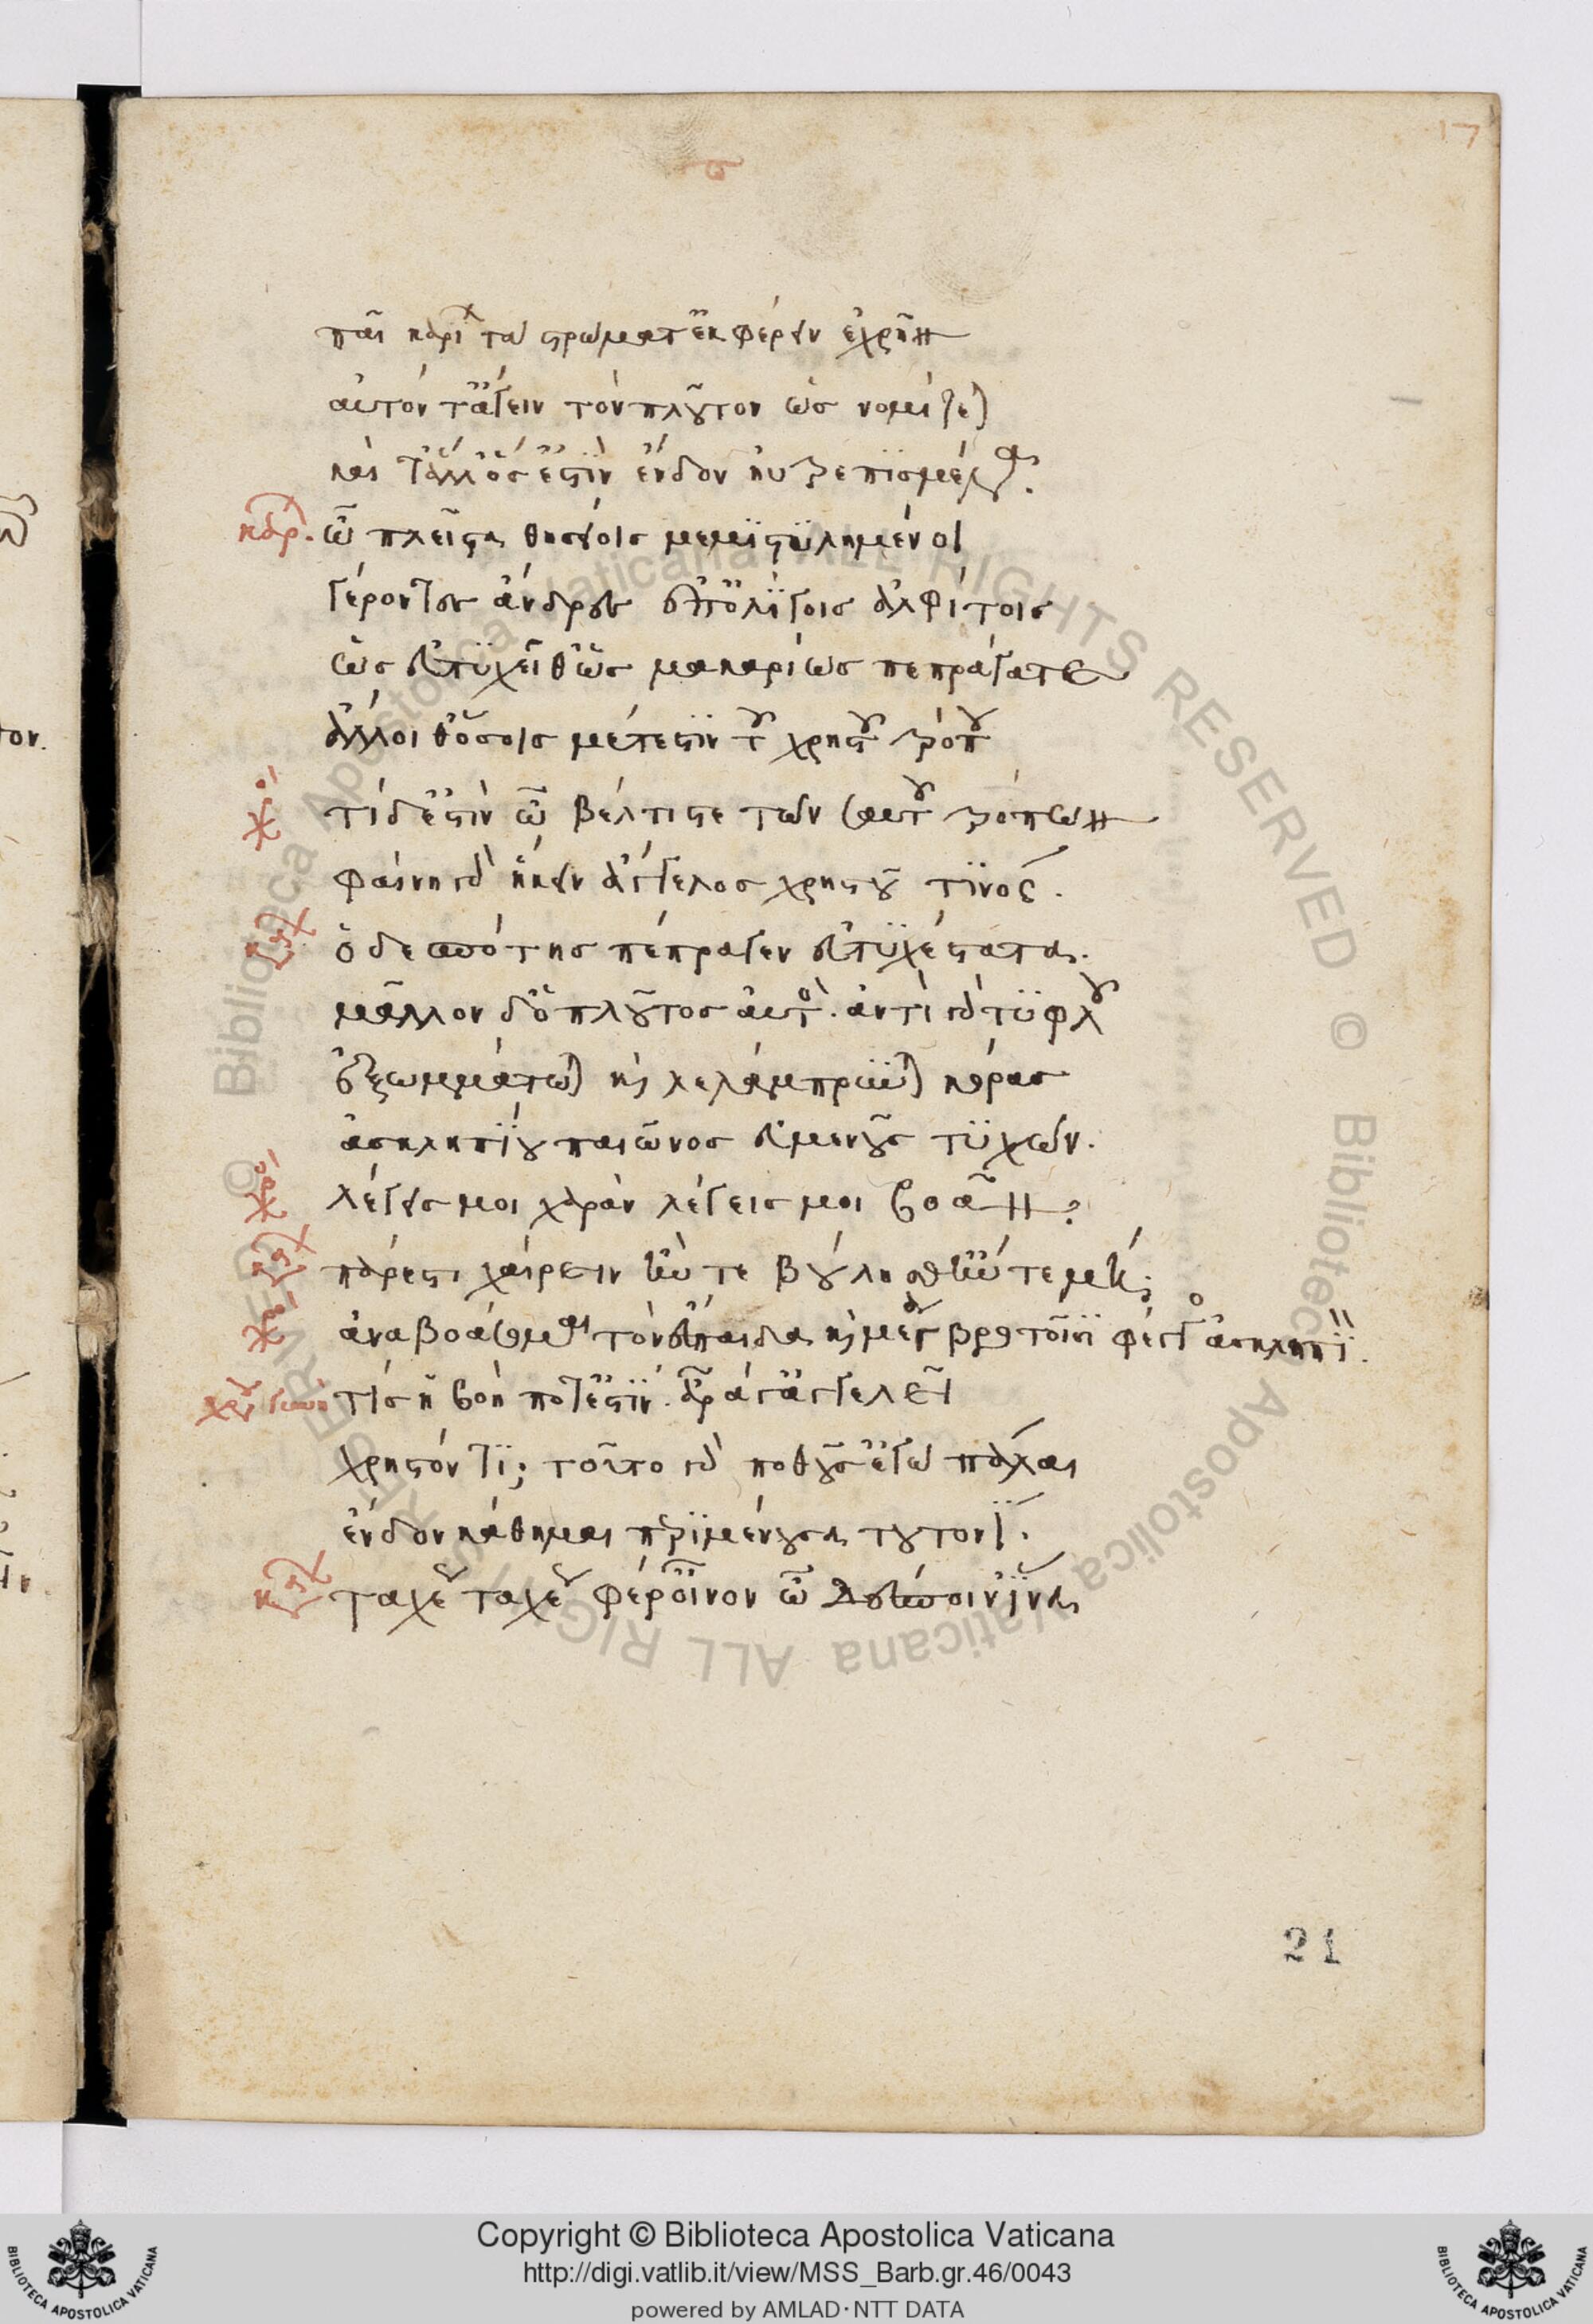 17
παῖ καρίων τὰ στρώματ' ἐκφέρειν ἐχρῆν
αὐτόν τ' ἄγειν τὸν πλοῦτον ὡς νομίζεται
καὶ τἄλλ' ὅσ' ἐστὶν ἔνδον ηὐτρεπισμένα.
καρ. ὦ πλεῖστα θησείοις μεμιστυλημένοι
γέροντες ἄνδρες ἐπ' ὀλιγίστοις ἀλφίτοις
ὡς εὐτυχεῖθ' ὡς μακαρίως πεπράγατε
ἄλλοι θ' ὅσοις μέτεστιν τοῦ χρηστοῦ τρόπου
χο. τί δ' ἔστιν ὦ βέλτιστε τῶν σαυτοῦ τρόπων
φαίνη γὰρ ἥκειν ἄγγελος χρηστοῦ τινός.
καρ ὁ δεσπότης πέπραγεν εὐτυχέστατα.
μᾶλλον δ' ὁ πλοῦτος αὐτός. ἀντὶ γὰρ τυφλοῦ
ἐξωμμάτωται καὶ λελάμπρυνται κόρας
ἀσκληπιοῦ παιῶνος εὐμενοῦς τυχών.
χο. λέγεις μοι χαρὰν λέγεις μοι βοάν.
καρ πάρεστι χαίρειν ἤν τε βούλησθ' ἤν τε μή.
χο. ἀναβοάσομαι τὸν εὔπαιδα καὶ μέγα βροτοῖσι φέγγος ἀσκληπιόν.
γυνή τίς ἡ βοή ποτ' ἐστίν. ἆρά γ' ἀγγελεῖ
χρηστόν τι; τοῦτο γὰρ ποθοῦσ' ἐγὼ πάλαι
ἔνδον κάθημαι περιμένουσα τουτονί.
καρ ταχέως ταχέως φέρ' οἶνον ὦ δέσποιν' ἵνα
21
© Biblioteca Apostolica Vaticana ALL RIGHTS RESERVED © Biblioteca Apostolica Vaticana ALL RIGHTS RESERVED
Copyright © Biblioteca Apostolica Vaticana
http://digi.vatlib.it/view/MSS_Barb.gr.46/0043
powered by AMLAD·NTT DATA
BIBLIOTECA APOSTOLICA VATICANA
BIBLIOTECA APOSTOLICA VATICANA